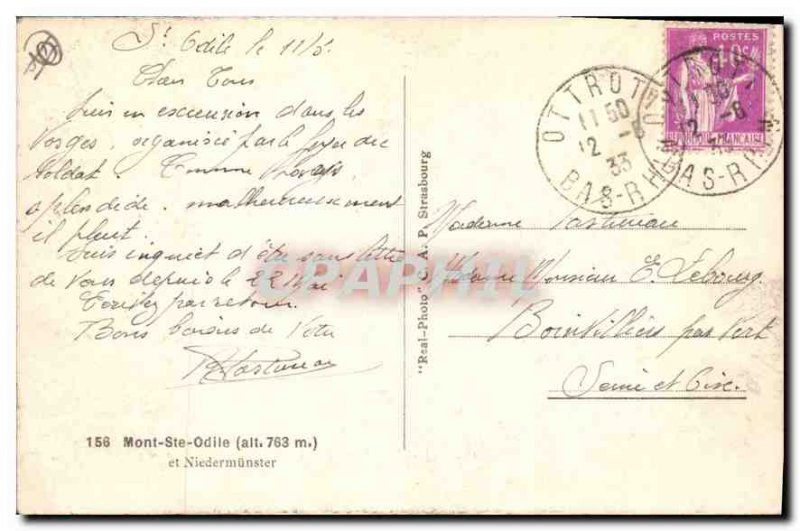 St Odile le 11/6.
Chers Tous
Suis en excursion dans les
Vosges, organisée par le foyer du
Soldat.
splendide. malheureusement
il pleut.
Suis inquiet d'être sans lettre
de vous depuis le 22 Mai
par retour.
Bons baisers de Votre
156 Mont-Ste-Odile (alt. 763 m.)
et Niedermünster
"Real-Photo" C. A. P. Strasbourg
POSTES
40c
REPUBLIQUE FRANÇAISE
OTTROTT
11 50
12 -6
33
BAS-RHIN
OTTROTT
12 -6
33
BAS-RHIN
Madame
Madame Monsieur E. Lebourg
Boinvilliers par Vert
Seine et Oise.
CPAPHIL